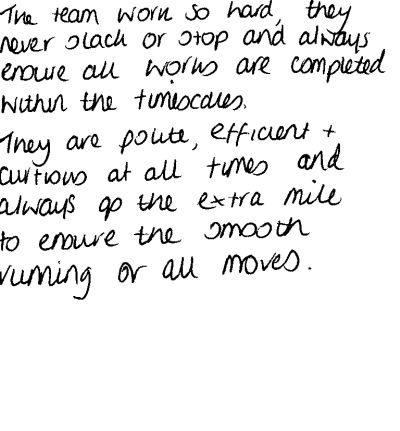 The team work so hard, they
never slack or stop and always
ensure all works are completed
within the timescales.
They are polite, efficient +
curtious at all times and
always go the extra mile
to ensure the smooth
running of all moves.